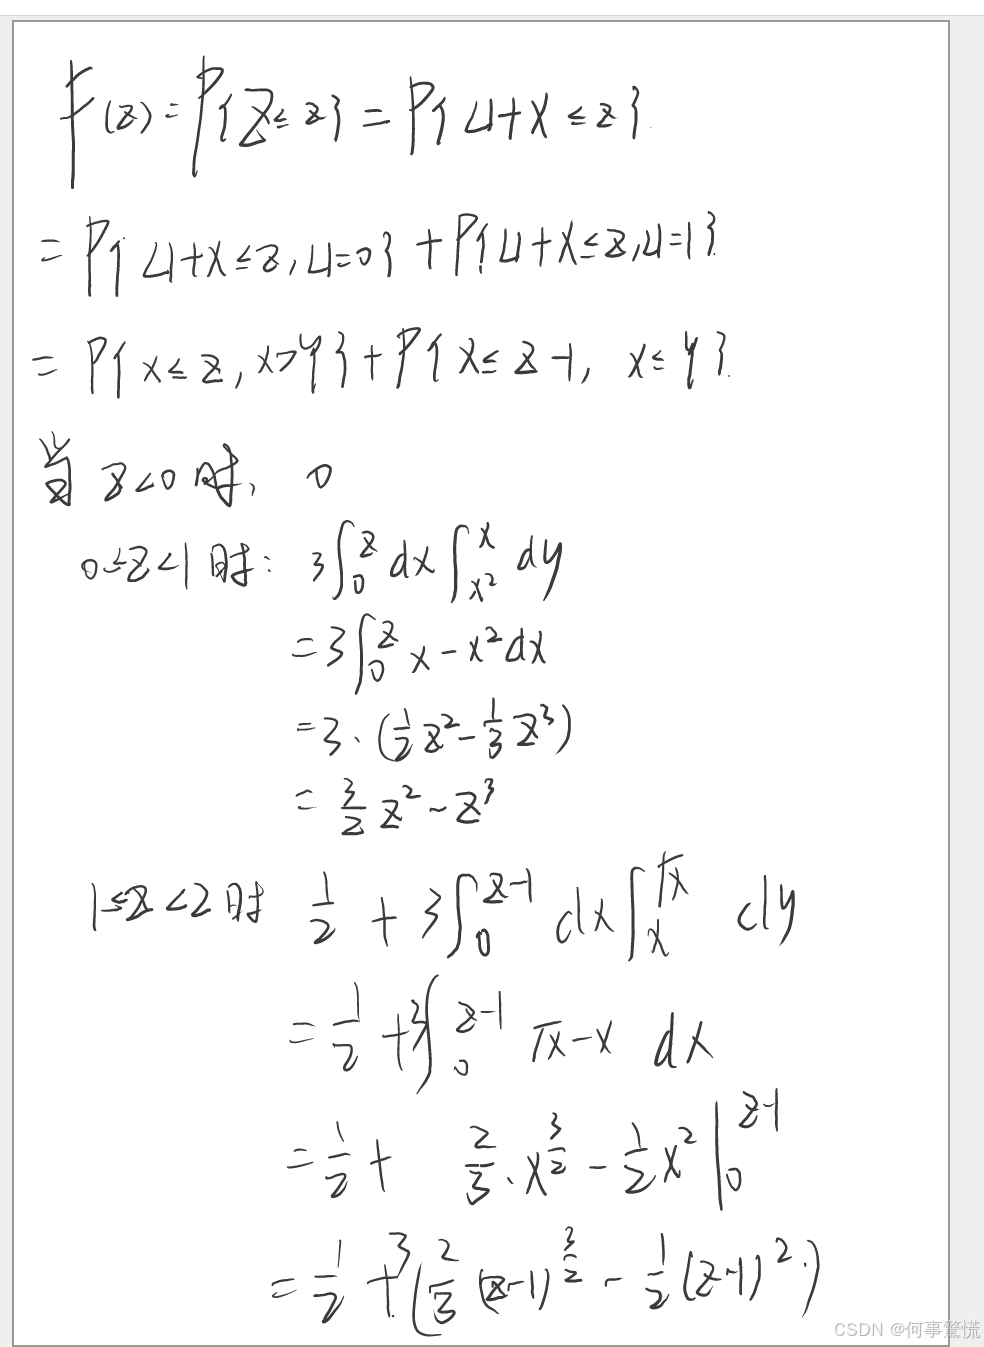 F(z) = P{Z ≤ z} = P{U+X ≤ z}.
= P{U+X ≤ z, U=0} + P{U+X ≤ z, U=1}.
= P{x ≤ z, x>y} + P{x ≤ z-1, x ≤ y}.
当 z<0 时, 0
0≤z<1 时: 3∫₀ᶻ dx ∫_{x²}^{x} dy
= 3∫₀ᶻ x - x² dx
= 3·(1/2 z² - 1/3 z³)
= 3/2 z² - z³
1≤z<2 时 1/2 + 3∫₀^{z-1} dx ∫_{x}^{√x} dy
= 1/2 + 3∫₀^{z-1} √x - x dx
= 1/2 + 2/3·x^{3/2} - 1/2 x² |₀^{z-1}
= 1/2 + 3(2/3 (z-1)^{3/2} - 1/2 (z-1)².)
CSDN @何事驚慌